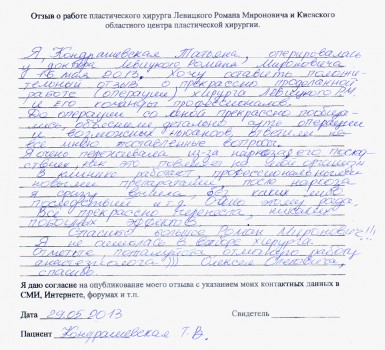 Отзыв о работе пластического хирурга Левицкого Романа Мироновича и Киевского
областного центра пластической хирургии.
Я, Кондрашевская Татьяна, оперировалась
у доктора Левицкого Романа Мироновича
16 мая 2013. Хочу оставить положи-
тельный отзыв о прекрасно проделанной
работе (операции) хирурга Левицкого Р.М
и его команды профессионалов.
До операции со мной прекрасно пообща-
лись, объяснили детально суть операции
и возможных нюансов, ответили на
все мною поставленные вопросы.
Я очень переживала из-за наркоза, его послед-
ствий, как это повлияет на мой организм
В клинике работают профессионалы
новейшими препаратами, после наркоза
я сразу без каких либо
последствий и т.д. Очень этому рада.
Все прекрасно перенесла, никаких
побочных эффектов.
Спасибо большое Роман Миронович!!!
Я не ошиблась в выборе хирурга.
Отметьте, пожалуйста, отличную работу
анестезиолога))) Олексея Олеговича,
спасибо.
Я даю согласие на опубликование моего отзыва с указанием моих контактных данных в
СМИ, Интернете, форумах и т.п.
Дата 29.05.2013 Свидетель
Пациент Кондрашевская Т.В.